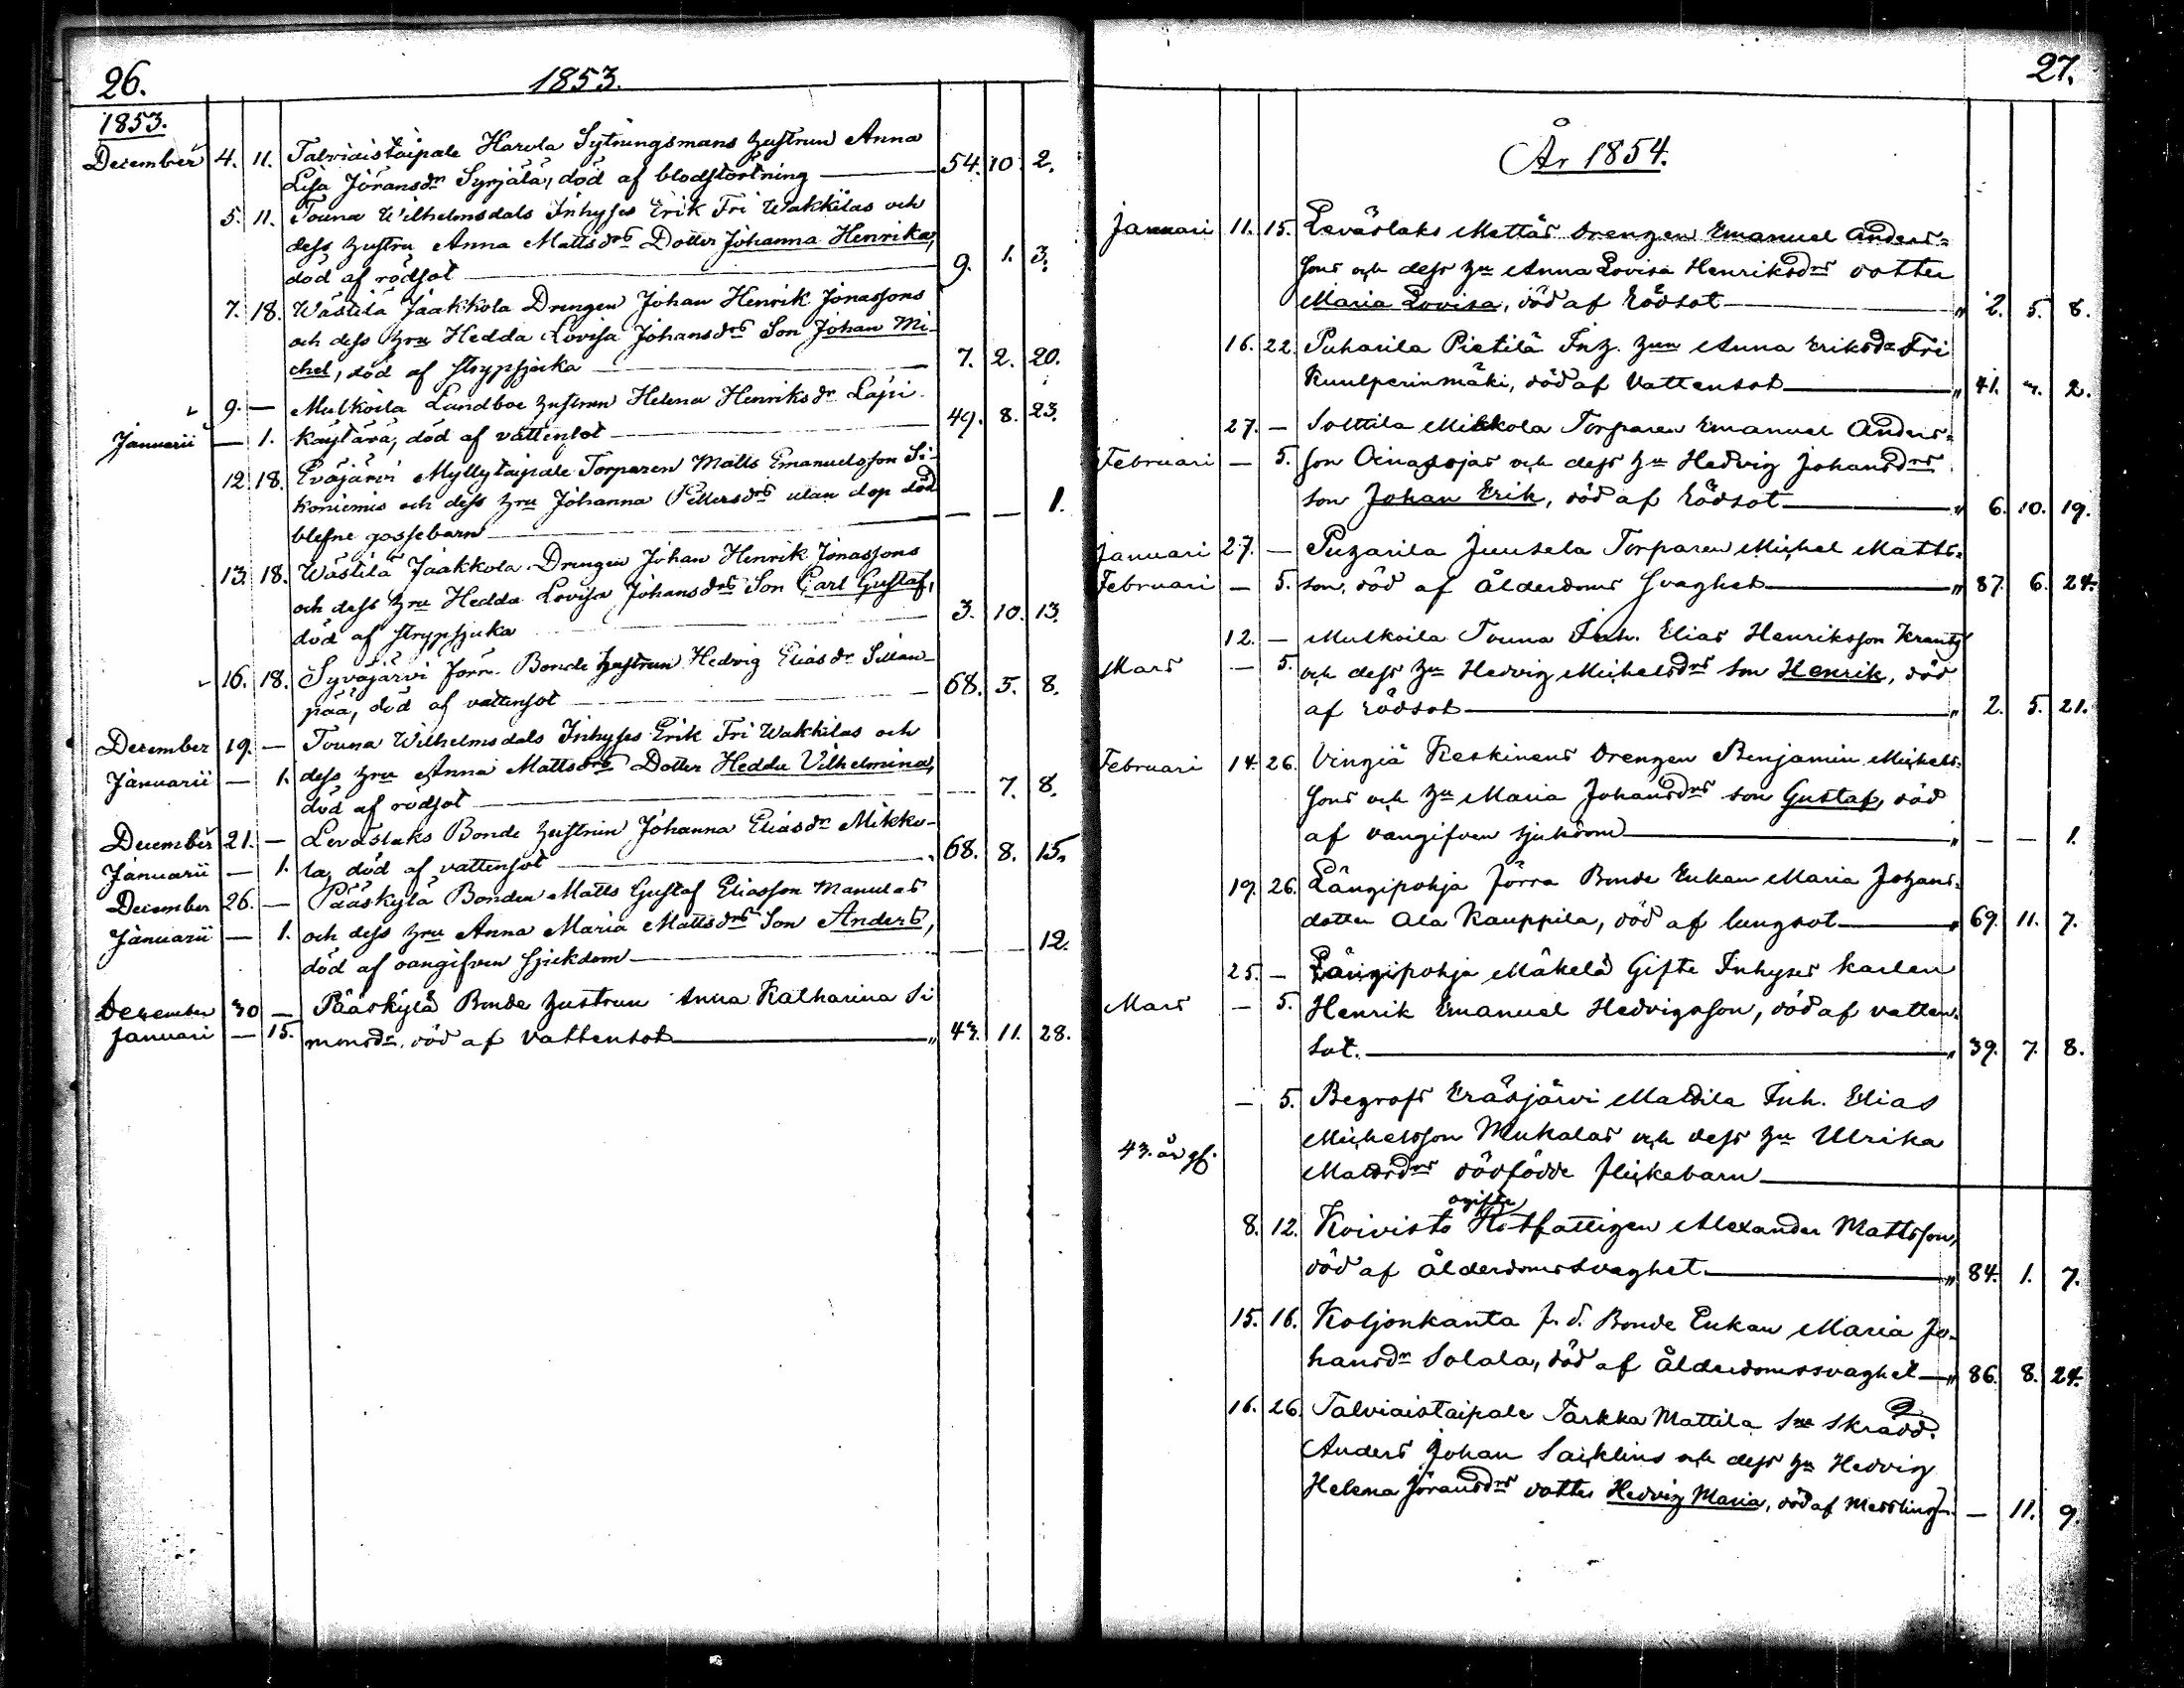 26.
1853.
1853.
December 4. 11. Talviaistaipale Harola Sytningsmans hustrun Anna
Lisa Jöransdr Syrjälä, död af blodstörtning — 54. 10. 2.
5. 11. Touna Wilhelmsdals Inhyses Erik Fri Wakkilas och
dess hustru Anna Mattsdrs Dotter Johanna Henrika,
död af rödsot — 9. 1. 3.
7. 18. Wästilä Jaakkola Drengen Johan Henrik Jonassons
och dess hru Hedda Lovisa Johansdrs Son Johan Mi-
chel, död af strypsjuka — 7. 2. 20.
9. — Mulkoila Landboe hustrun Helena Henriksdr Lapi
Januarii — 1. käytävä, död af vattensot — 49. 8. 23.
12. 18. Eväjärvi Myllytaipale Torparen Matts Emanuelsson Si-
koniemis och dess hru Johanna Pettersdrs utan dop död
blefne gossebarn — — — 1.
13. 18. Wästilä Jaakkola Drengen Johan Henrik Jonassons
och dess hru Hedda Lovisa Johansdrs Son Carl Gustaf,
död af strypsjuka — 3. 10. 13.
16. 18. Syväjärvi Jörr. Bonde hustrun Hedvig Eliasdr Sillan-
pää, död af vattensot — 68. 5. 8.
December 19. — Touna Wilhelmsdals Inhyses Erik Fri Wakkilas och
Januarii — 1. dess hru Anna Mattsdrs Dotter Hedda Vilhelmina,
död af rödsot — — 7. 8.
December 21. — Leväslaks Bonde hustrun Johanna Eliasdr Mikko-
Januarii — 1. la, död af vattensot — 68. 8. 15.
December 26. — Pääskylä Bonden Matts Gustaf Eliasson Manulas
Januarii — 1. och dess hru Anna Maria Mattsdrs Son Anders,
död af oangifven sjukdom — — — 12.
December 30 — Pääskylä Bonde hustrun Anna Katharina Si
Januari — 15. monsdr, död af Vattensot — " 43. 11. 28.
27.
År 1854.
Januari 11. 15. Leväslaks Mattas Drengen Emanuel Anders-
sons och dess hu Anna Lovisa Henriksdrs dotter
Maria Lovisa, död af Rödsot — " 2. 5. 8.
16. 22. Puharila Pietilä Inh. hun Anna Eriksdr Fri
Kuulperinmäki, död af Vattensot — " 41. 7. 2.
27. — Solttila Mikkola Torparen Emanuel Anders-
Februari — 5. son Oinassjas och dess hu Hedvig Johansdrs
son Johan Erik, död af Rödsot — " 6. 10. 19.
Januari 27. — Puharila Juusela Torparen Michel Matts-
Februari — 5. son, död af Ålderdoms Svaghet — " 87. 6. 24.
12. — Mulkoila Touna Inh. Elias Henriksson Krantz
Mars — 5. och dess hu Hedvig Michelsdrs son Henrik, död
af Rödsot — " 2. 5. 21.
Februari 14. 26. Vingiä Keskinens Drengen Benjamin Michels-
sons och hu Maria Johansdrs son Gustaf, död
af oangifven sjukdom — " — — 1.
19. 26. Längipohja Jörra Bonde Enkan Maria Johans-
dotter Ala Kauppila, död af lungsot — " 69. 11. 7.
25. — Längipohja Mäkelä Gifte Inhyses karlen
Mars — 5. Henrik Emanuel Hedvigsson, död af vatten-
sot. — " 39. 7. 8.
— 5. Begrofs Eräsjärvi Mattila Inh. Elias
Michelsson Mukalas och dess hu Ulrika
43. år gl. Mattsdrs dödfödde flickebarn —
ogifte
8. 12. Koivisto Rotfattigen Alexander Mattsson,
död af Ålderdomssvaghet — " 84. 1. 7.
15. 16. Koljonkanta f. d. Bonde Enkan Maria Jo-
hansdr Solala, död af Ålderdomssvaghet — " 86. 8. 24.
16. 26. Talviaistaipale Tarkka Mattila Sne Skrädd.
Anders Johan Saiklins och dess hu Hedvig
Helena Jöransdrs dotter Hedvig Maria, död af Messling — — 11. 9.